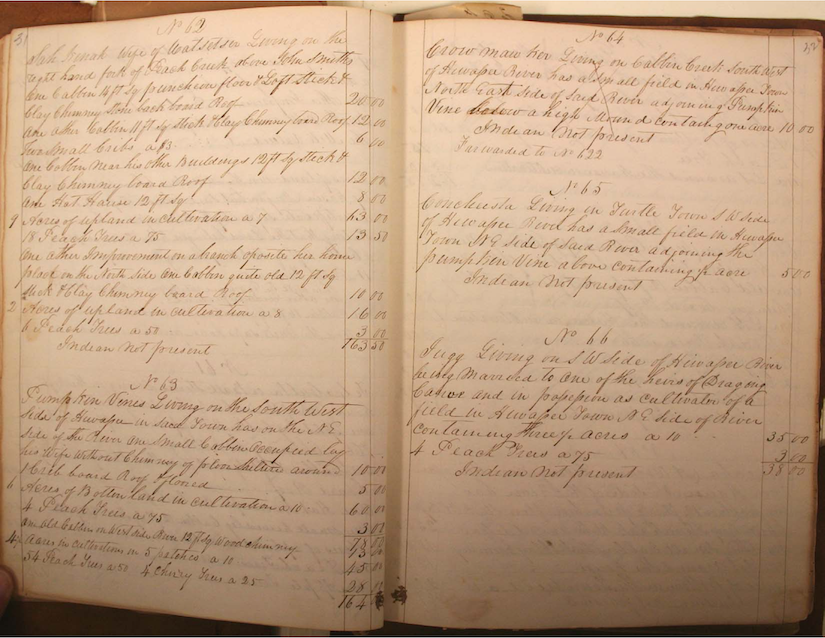 31
No 62
Wife of Watseesa Living on the
right hand fork of Peach Creek above John Smiths
One Cabbin 14 ft Sq puncheon floor & Loft Stick &
Clay Chimney Stone back board Roof 20 00
one other Cabbin 11 ft Sq Stick & Clay Chimney board Roof 12 00
Two Small Cribs a $3 6 00
one Cabbin near his other Buildings 12 ft Sq Stick &
Clay Chimney board Roof 12 00
one Hot House 12 ft Sq 8 00
9 Acres of upland in cultivation a 7 63 00
18 Peach Trees a 75 13 50
one other Improvement on a branch oposite her home
place on the North Side one Cabbin quite old 12 ft Sq
Stick & Clay Chimney board Roof 10 00
2 Acres of upland in cultivation a 8 16 00
6 Peach Trees a 50 3 00
Indian not present 163 50
No 63
Pumpkin Vines Living on the South West
side of Hiwassee in Town has on the N.E
side of the River one Small Cabbin occupied by
his Wife Without Chimney around
1 Crib board Roof 10 00
5 00
6 Acres of Bottom land in cultivation a 10 60 00
4 Peach Trees a 75 3 00
one Old Cabbin on West side River 12 ft Sq Wood Chimney
4½ Acres in cultivation in 5 patches a 10 45 00
54 Peach Trees a 50 4 Cherry Trees a 25 28
164
32
No 64
Crow maw ker Living on Cabbin Creek South West
of Hiwassee River has a Small field in Hiwassee Town
North East Side of said River adjoining Pumpkin
Vine below a high Mound containg one acre 10 00
Indian Not present
Forwarded to No 622
No 65
Living in Turtle Town S W side
of Hiwassee River has a Small field in Hiwassee
Town N.E side of Said River adjoining the
pumpken Vine above containing ½ acre 5 00
Indian Not present
No 66
Jugg Living on S W Side of Hiwassee River
being Married to one of the heirs of Draging
Canoe and in possession as cultivator of a
field in Hiwassee Town N.E side of River
containing three ½ acres a 10 35 00
4 Peach Trees a 75 3 00
Indian Not present 38 00